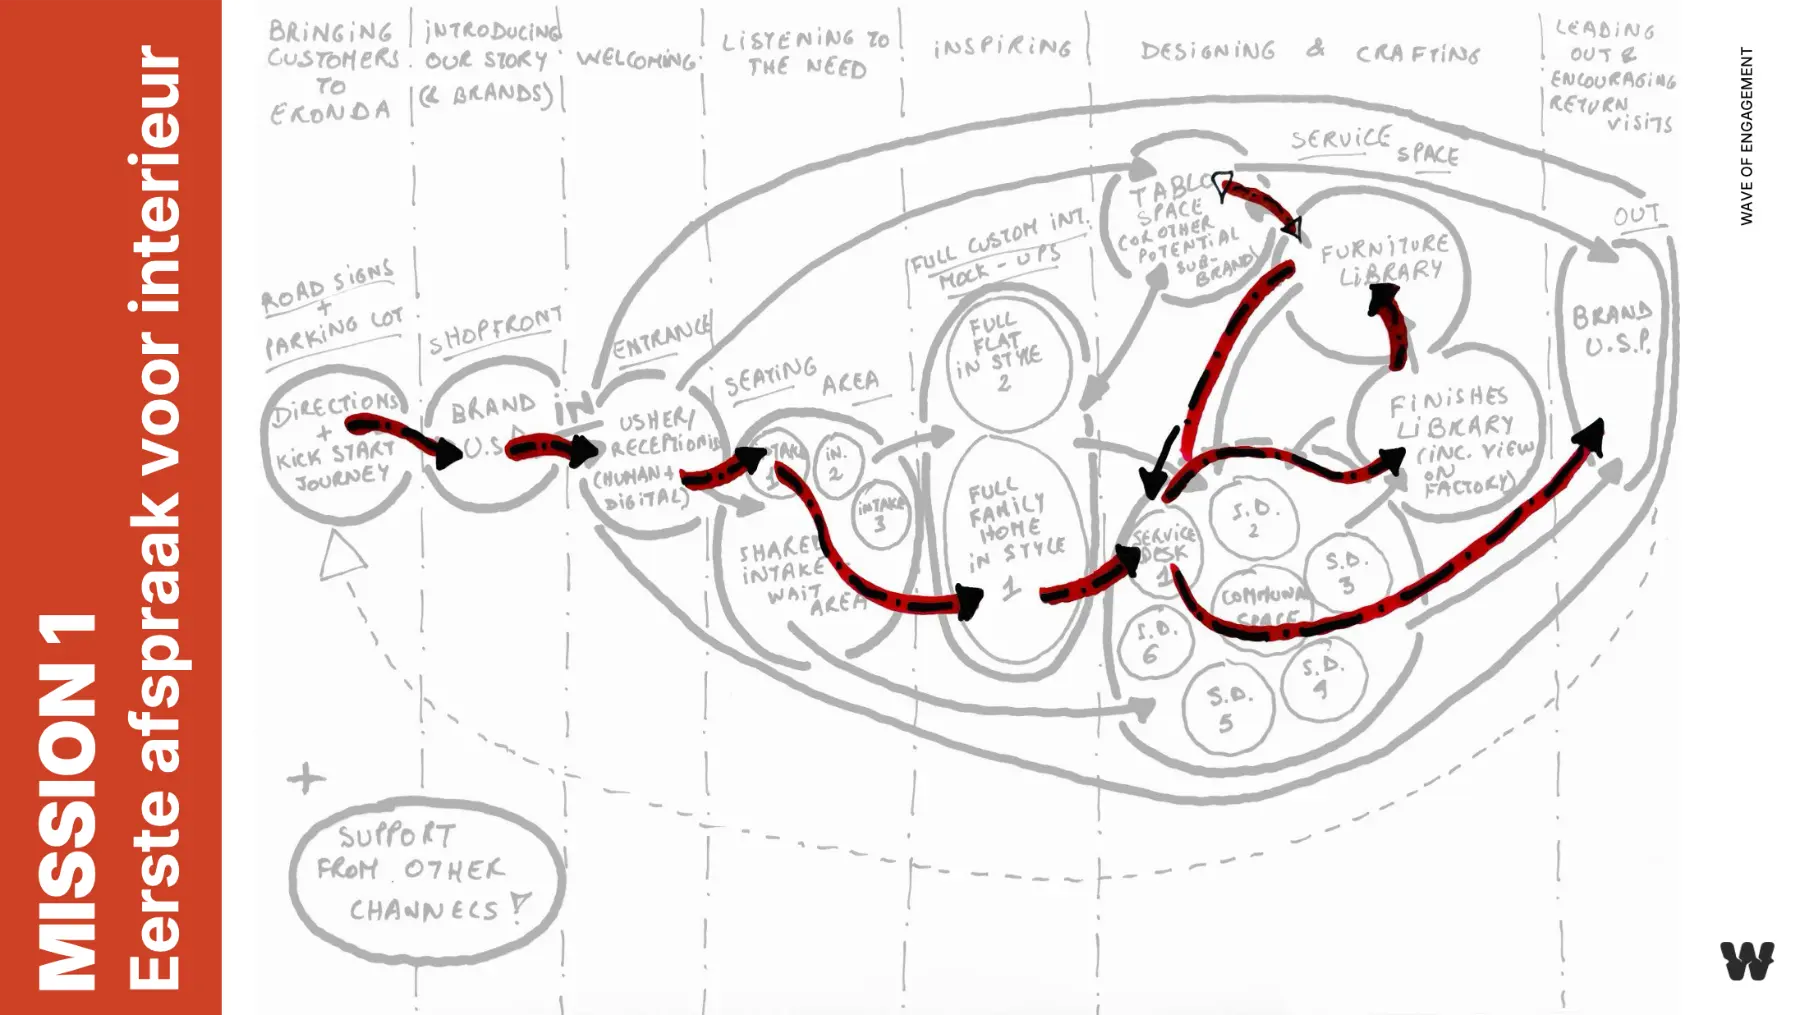 MISSION 1
Eerste afspraak voor interieur
BRINGING
CUSTOMERS
TO
ERONDA
INTRODUCING
OUR STORY
(& BRANDS)
WELCOMING
LISTENING TO
THE NEED
INSPIRING
DESIGNING & CRAFTING
LEADING
OUT &
ENCOURAGING
RETURN
VISITS
WAVE OF ENGAGEMENT
ROAD SIGNS
+
PARKING LOT
DIRECTIONS
+
KICK START
JOURNEY
SHOPFRONT
BRAND
U.S.
IN
ENTRANCE
USHER/
RECEPTIONIS
(HUMAN +
DIGITAL)
SEATING AREA
INTAKE
1
IN.
2
INTAKE
3
SHARED
INTAKE
WAIT
AREA
FULL CUSTOM INT.
MOCK-UPS
FULL
FLAT
IN STYLE
2
FULL
FAMILY
HOME
IN STYLE
1
SERVICE SPACE
SPACE
(OR OTHER
POTENTIAL
SUB-
BRAND)
FURNITURE
LIBRARY
FINISHES
LIBRARY
(INC. VIEW
ON
FACTORY)
SERVICE
DESK
1
S.D.
2
S.D.
3
COMMUNAL
SPACE
S.D.
6
S.D.
5
S.D.
4
OUT
BRAND
U.S.P.
+
SUPPORT
FROM OTHER
CHANNELS
W